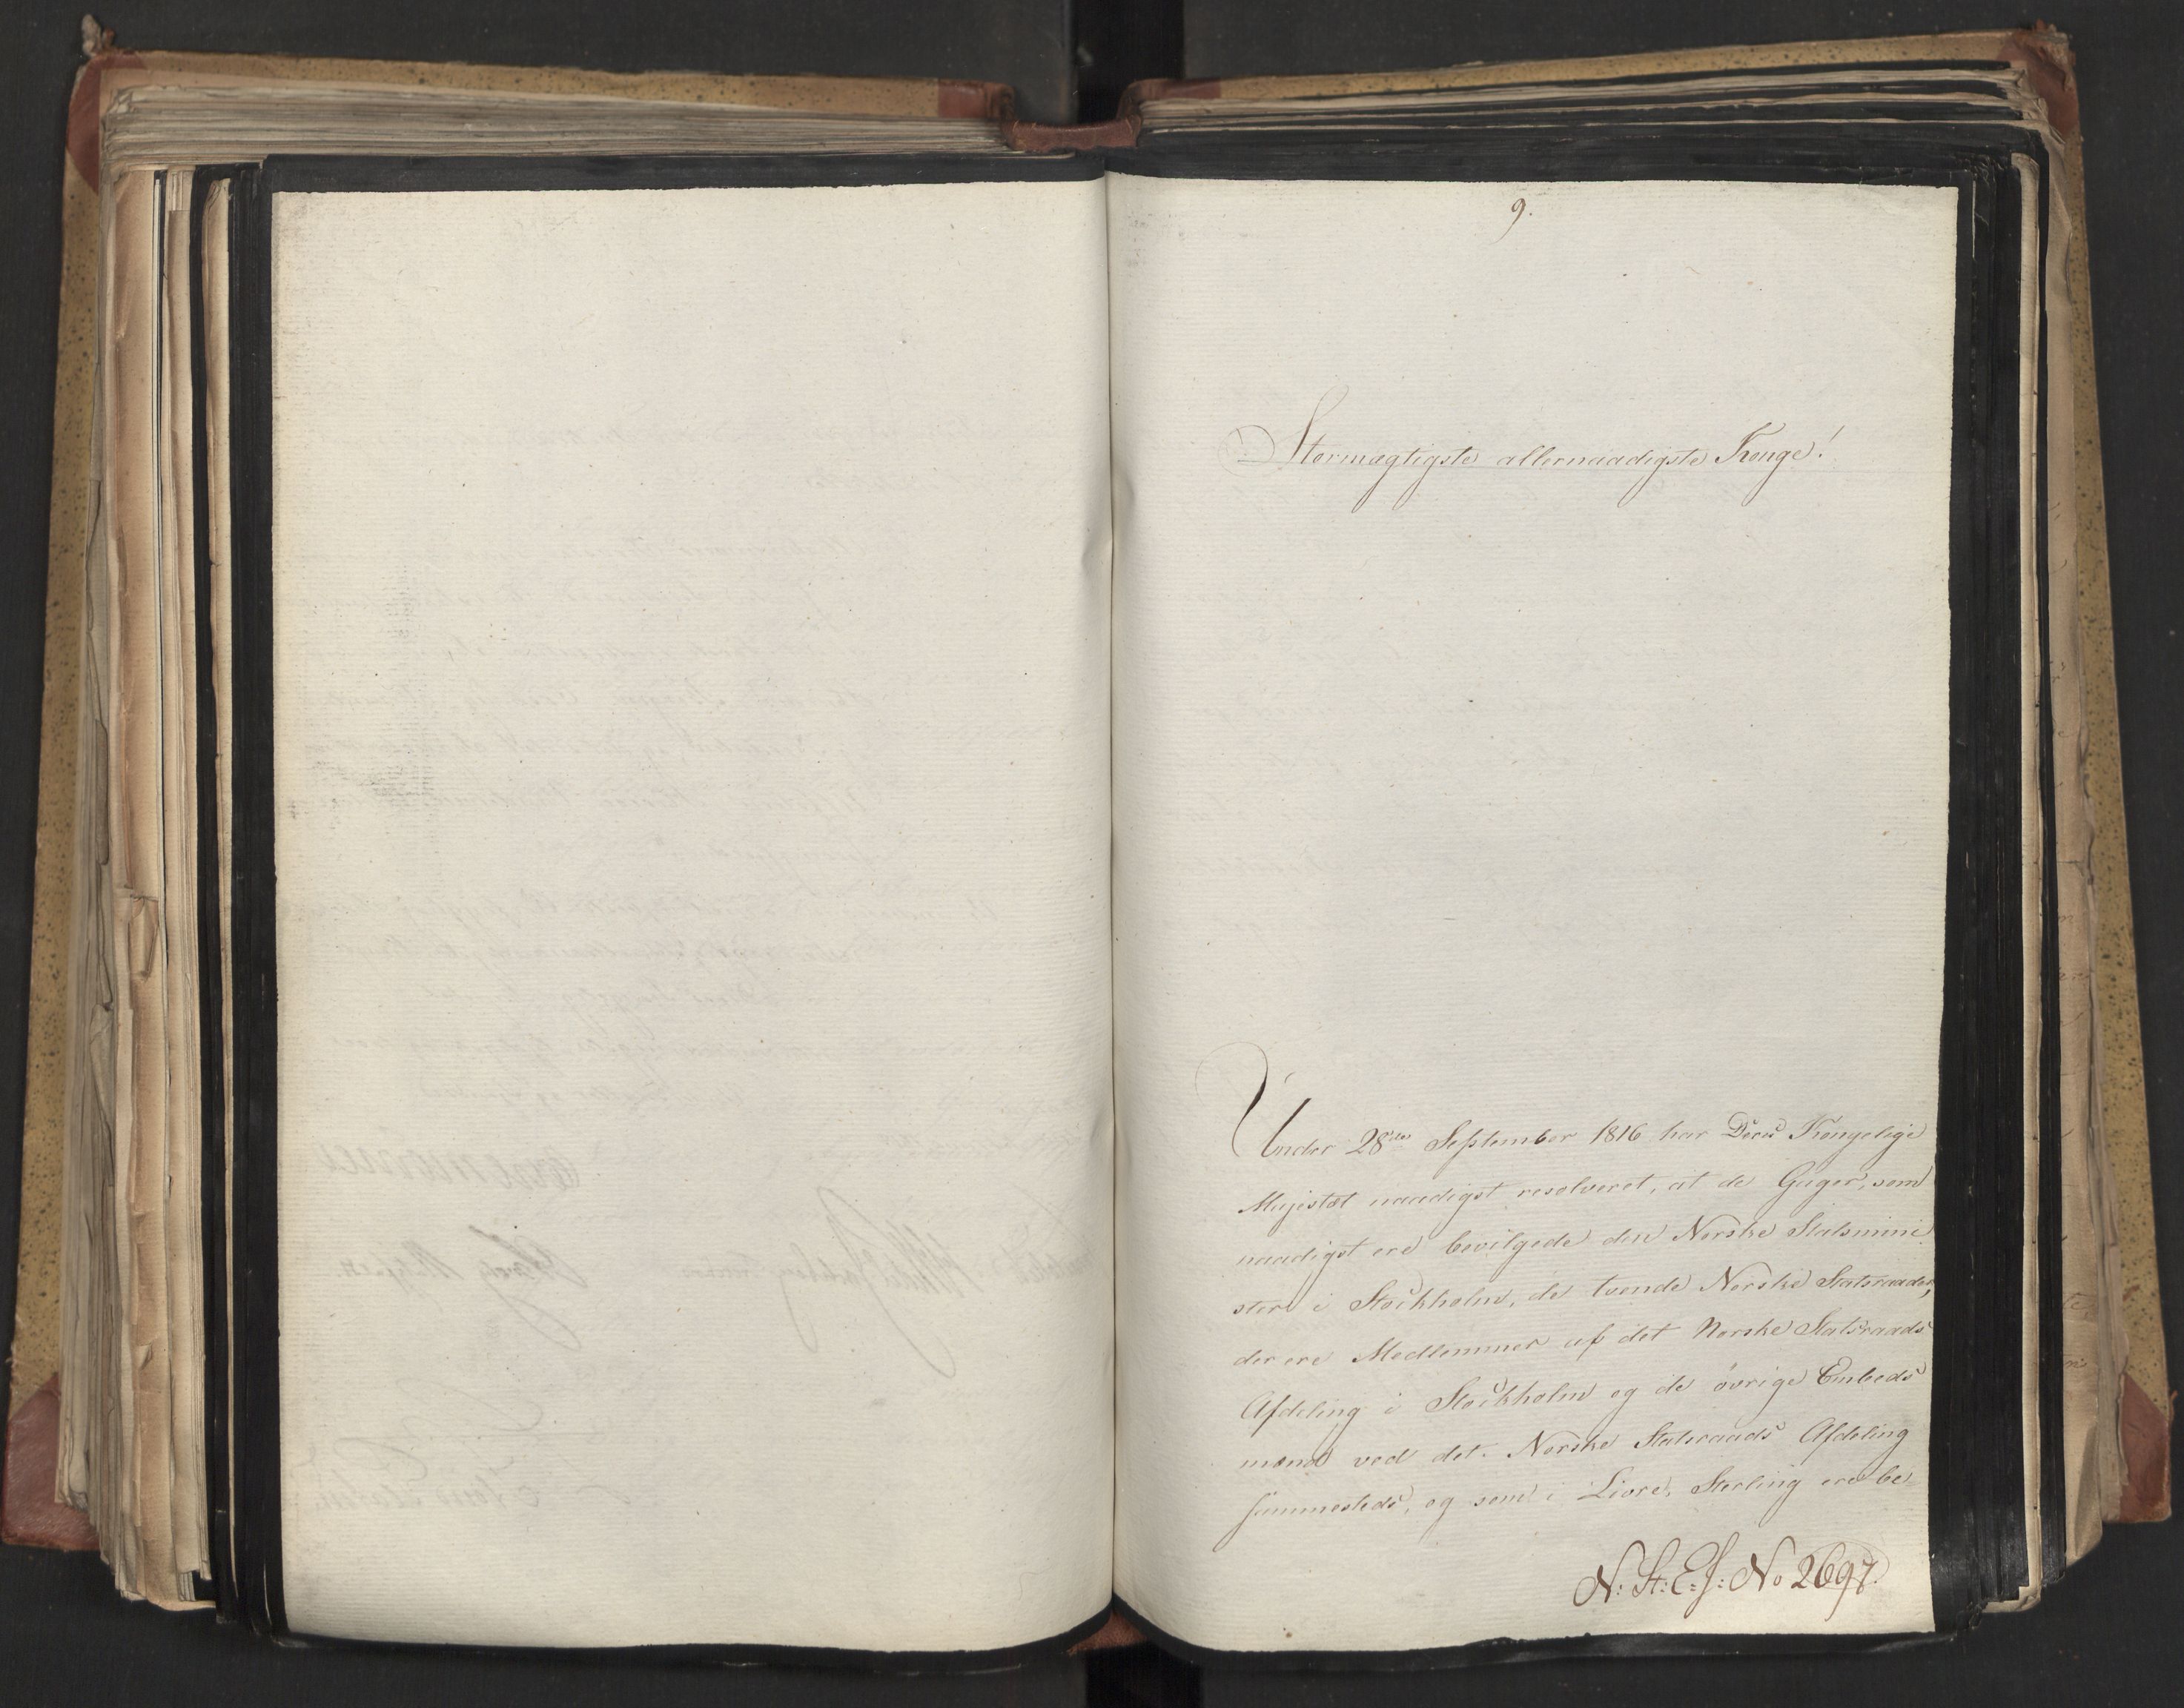 9.
Stormægtigste allernaadigste Konge!
Under 28de September 1816 har Deres Kongelige
Majestæt naadigst resolveret, at de Gager, som
naadigst ere bevilgede den Norske Statsmini
ster i Stockholm, de tvende Norske Statsraader,
der ere Medlemmer af det Norske Statsraads
Afdeling i Stockholm og de övrige Embeds
mænd ved det Norske Statsraads Afdeling
sammesteds, og som i Livre, Sterling ere be-
N: St: E: J: No 2697.